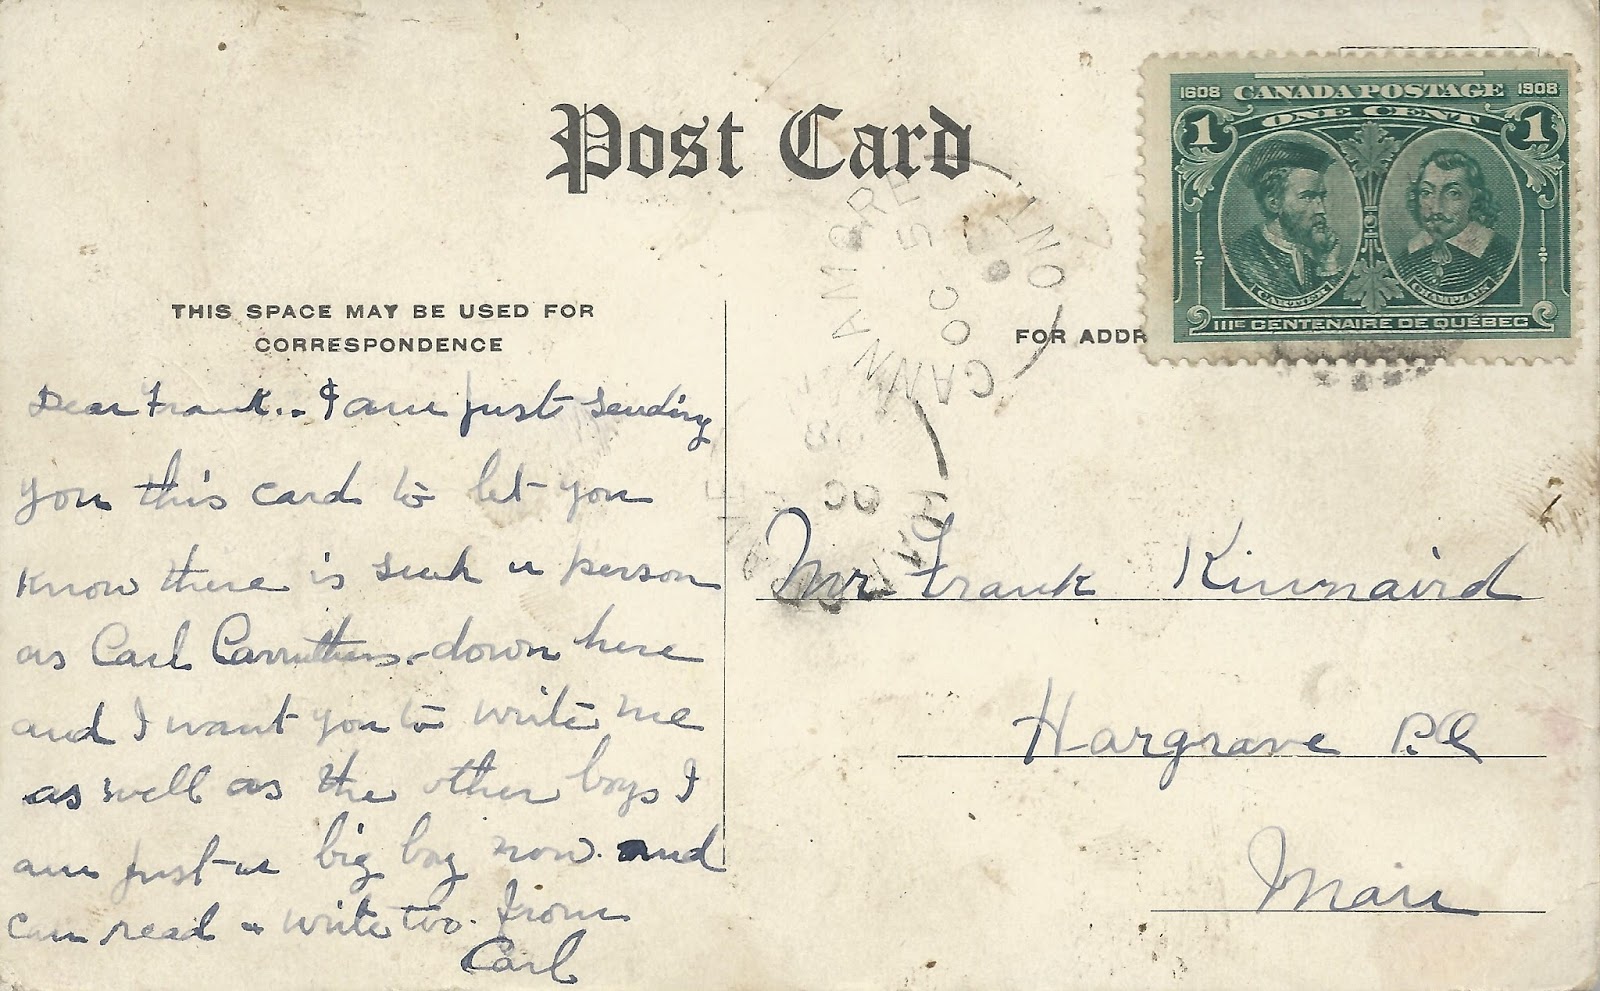 Post Card
1608 CANADA POSTAGE 1908
1 ONE CENT 1
CARTIER CHAMPLAIN
IIIE CENTENAIRE DE QUÉBEC
CANNAMORE
OC 5
ONT
THIS SPACE MAY BE USED FOR
CORRESPONDENCE
FOR ADDR
Dear Frank.. I am just sending
you this card to let you
know there is such a person
as Carl Carruthers. down here
and I want you to write me
as well as the other boys I
am just a big boy now. and
can read & write too. from
Carl
Mr Frank Kinnaird
Hargrave P.O
Man